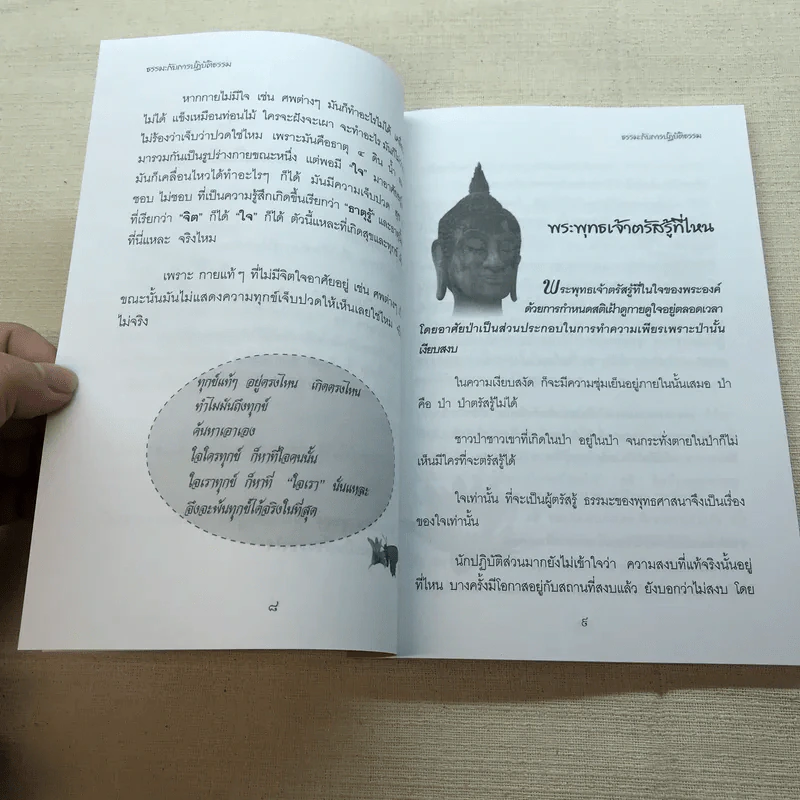 ธรรมะกับการปฏิบัติธรรม
หากกายไม่มีใจ เช่น ศพต่างๆ มันก็ทำอะไรไม่ได้
ไม่ได้ แข็งเหมือนท่อนไม้ ใครจะฝังจะเผา จะทำอะไร
ไม่ร้องว่าเจ็บว่าปวดใช่ไหม เพราะมันคือธาตุ ๔ ดิน น้ำ
มารวมกันเป็นรูปร่างกายขณะหนึ่ง แต่พอมี "ใจ"
มันก็เคลื่อนไหวได้ทำอะไรๆ ก็ได้ มันมีความเจ็บปวด
ชอบ ไม่ชอบ ที่เป็นความรู้สึกเกิดขึ้นเรียกว่า "ธาตุรู้"
ที่เรียกว่า "จิต" ก็ได้ "ใจ" ก็ได้ ตัวนี้แหละที่เกิดสุขและทุกข์
ที่นี่แหละ จริงไหม
เพราะ กายแท้ๆ ที่ไม่มีจิตใจอาศัยอยู่ เช่น ศพต่างๆ
ขณะนั้นมันไม่แสดงความทุกข์เจ็บปวดให้เห็นเลยใช่ไหม
ไม่จริง
ทุกข์แท้ๆ อยู่ตรงไหน เกิดตรงไหน
ทำไมมันถึงทุกข์
ค้นหาเอาเอง
ใจใครทุกข์ ก็หาที่ใจคนนั้น
ใจเราทุกข์ ก็หาที่ "ใจเรา" นั่นแหละ
จึงจะพ้นทุกข์ได้จริงในที่สุด
๘
ธรรมะกับการปฏิบัติธรรม
พระพุทธเจ้าตรัสรู้ที่ไหน
พระพุทธเจ้าตรัสรู้ที่ในใจของพระองค์
ด้วยการกำหนดสติเฝ้าดูกายดูใจอยู่ตลอดเวลา
โดยอาศัยป่าเป็นส่วนประกอบในการทำความเพียรเพราะป่านั้น
เงียบสงบ
ในความเงียบสงัด ก็จะมีความชุ่มเย็นอยู่ภายในนั้นเสมอ ป่า
คือ ป่า ป่าตรัสรู้ไม่ได้
ชาวป่าชาวเขาที่เกิดในป่า อยู่ในป่า จนกระทั่งตายในป่าก็ไม่
เห็นมีใครที่จะตรัสรู้ได้
ใจเท่านั้น ที่จะเป็นผู้ตรัสรู้ ธรรมะของพุทธศาสนาจึงเป็นเรื่อง
ของใจเท่านั้น
นักปฏิบัติส่วนมากยังไม่เข้าใจว่า ความสงบที่แท้จริงนั้นอยู่
ที่ไหน บางครั้งมีโอกาสอยู่กับสถานที่สงบแล้ว ยังบอกว่าไม่สงบ โดย
๙